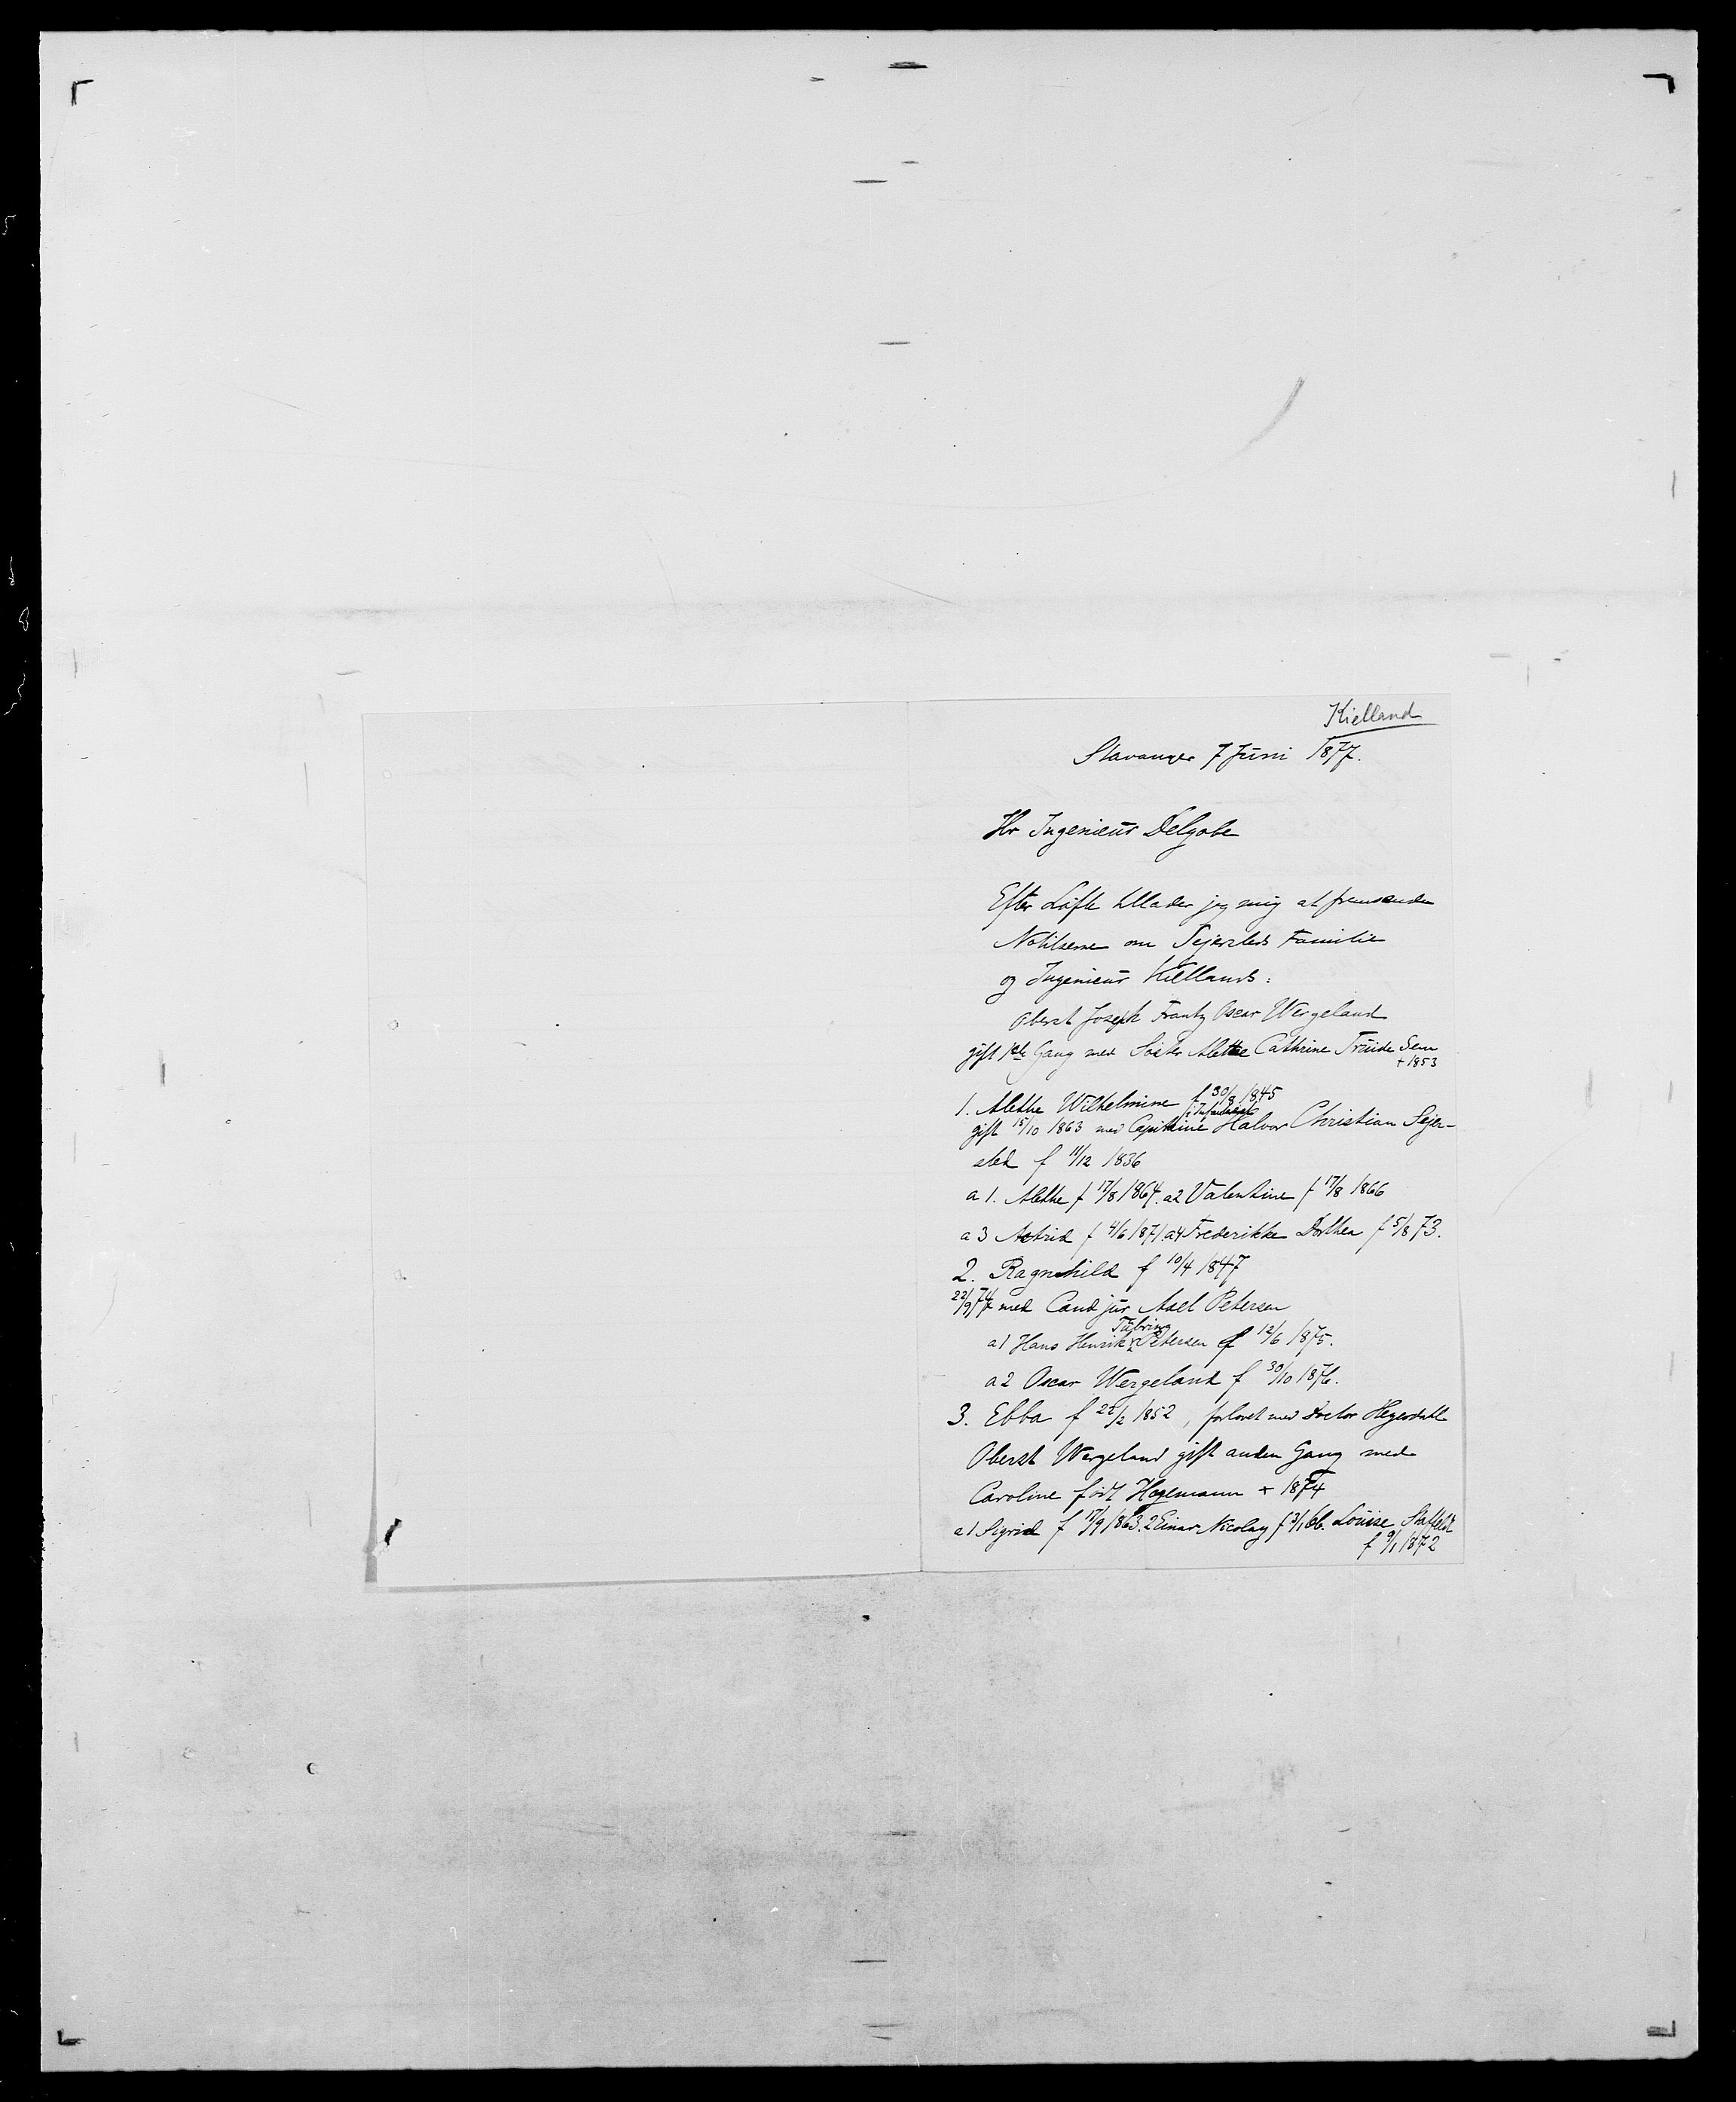 Kielland
Stavanger 7 Juni 1877.
Hr Ingenieur Delgobe
Efter Löfte tillader jeg mig at fremsende
Notitserne om Sejersteds Familie
og Ingenieur Kiellands:
Oberst Joseph Frantz Oscar Wergeland
gift 1ste Gang med Alethe Cathrine Sem
+ 1853
1. Alethe Wilhelmine f 30/8 1845
i Infanteriet
gift 15/10 1863 med Capitaine Halvor Christian Sejer-
sted f 11/12 1836
a 1. Alethe f 17/8 1864. a2 Valentine f 17/8 1866
a 3 Astrid f 4/6 1871. a4 Frederikke Dorthea f 5/8 73.
2. Ragnhild f 10/4 1847
22/9 74 med Cand jur Axel Petersen
a1 Hans Henrik Petersen f 12/6 1875.
a2 Oscar Wergeland f 30/10 1876.
3. Ebba f 22/2 1852, forlovet med Doctor Hegerdahl
Oberst Wergeland gift anden Gang med
Caroline født Hagemann + 1874
a1 Sigrid f 17/9 1863. 2 Einar Nicolay f 3/1 66. Louise Staffeldt
f 9/1 1872